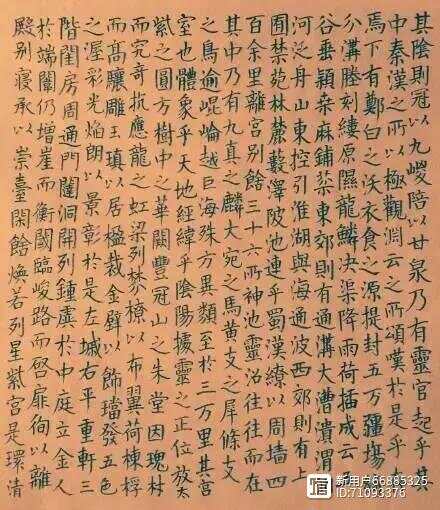 其陰則冠以九嵕陪以甘泉乃有靈宮起乎其
中秦漢之所以極觀淵云之所頌嘆於是乎存
焉下有鄭白之沃衣食之源提封五万疆埸
分溝塍刻縷原隰龍鱗決渠降雨荷插成云
谷垂穎桑麻鋪棻東郊則有通溝大漕潰渭
河泛舟山東控引淮湖與海通波西郊則有上
囿禁苑林麓藪澤陂池連乎蜀漢繚以周墻四
百余里離宮別館三十六所神池靈沼往往而在
其中乃有九真之麟大宛之馬黃支之犀條支
之鳥逾崐崘越巨海殊方異類至於三万里其宮
室也體象乎天地經緯乎陰陽據靈之正位放太
紫之圓方樹中之華闕豐冠山之朱堂因瑰材
而究奇抗應龍之虹梁列棼橑以布翼荷棟桴
而高驤雕玉瑱以居楹裁金璧以飾璫發五色
之渥彩光焰朗以景彰於是左墄右平重軒三
階閨房周通門闥洞開列鍾虡於中庭立金人
於端闈仍增崖而衡閾臨峻路而啓扉徇以離
殿別寢承以崇臺閑館煥若列星紫宮是環清
新用户66885325
ID:71093376